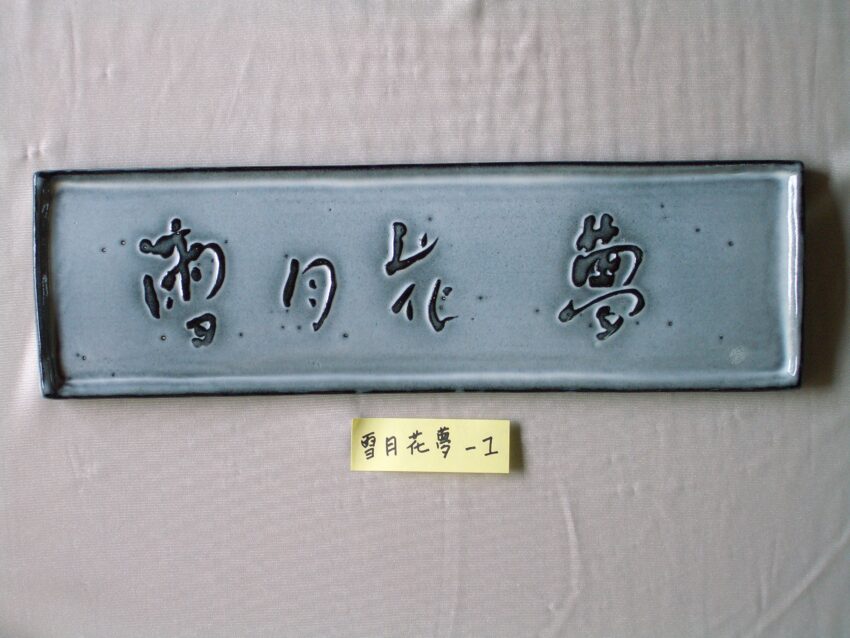 雪月花 夢
雪月花夢-1